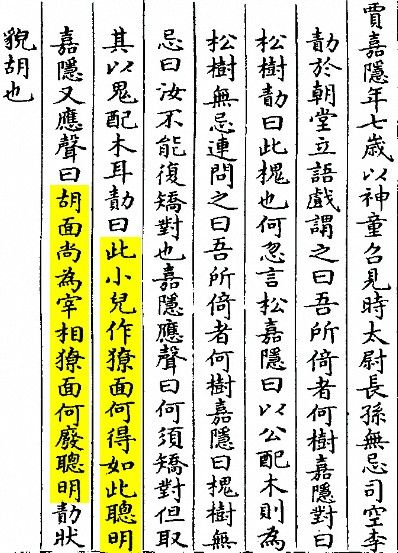 賈嘉隱年七歲以神童召見時太尉長孫無忌司空李
勣於朝堂立語戲謂之曰吾所倚者何樹嘉隱對曰
松樹勣曰此槐也何忽言松嘉隱曰以公配木則為
松樹無忌連問之曰吾所倚者何樹嘉隱曰槐樹無
忌曰汝不能復矯對也嘉隱應聲曰何須矯對但取
其以鬼配木耳勣曰此小兒作獠面何得如此聰明
嘉隱又應聲曰胡面尚為宰相獠面何廢聰明勣狀
貌胡也